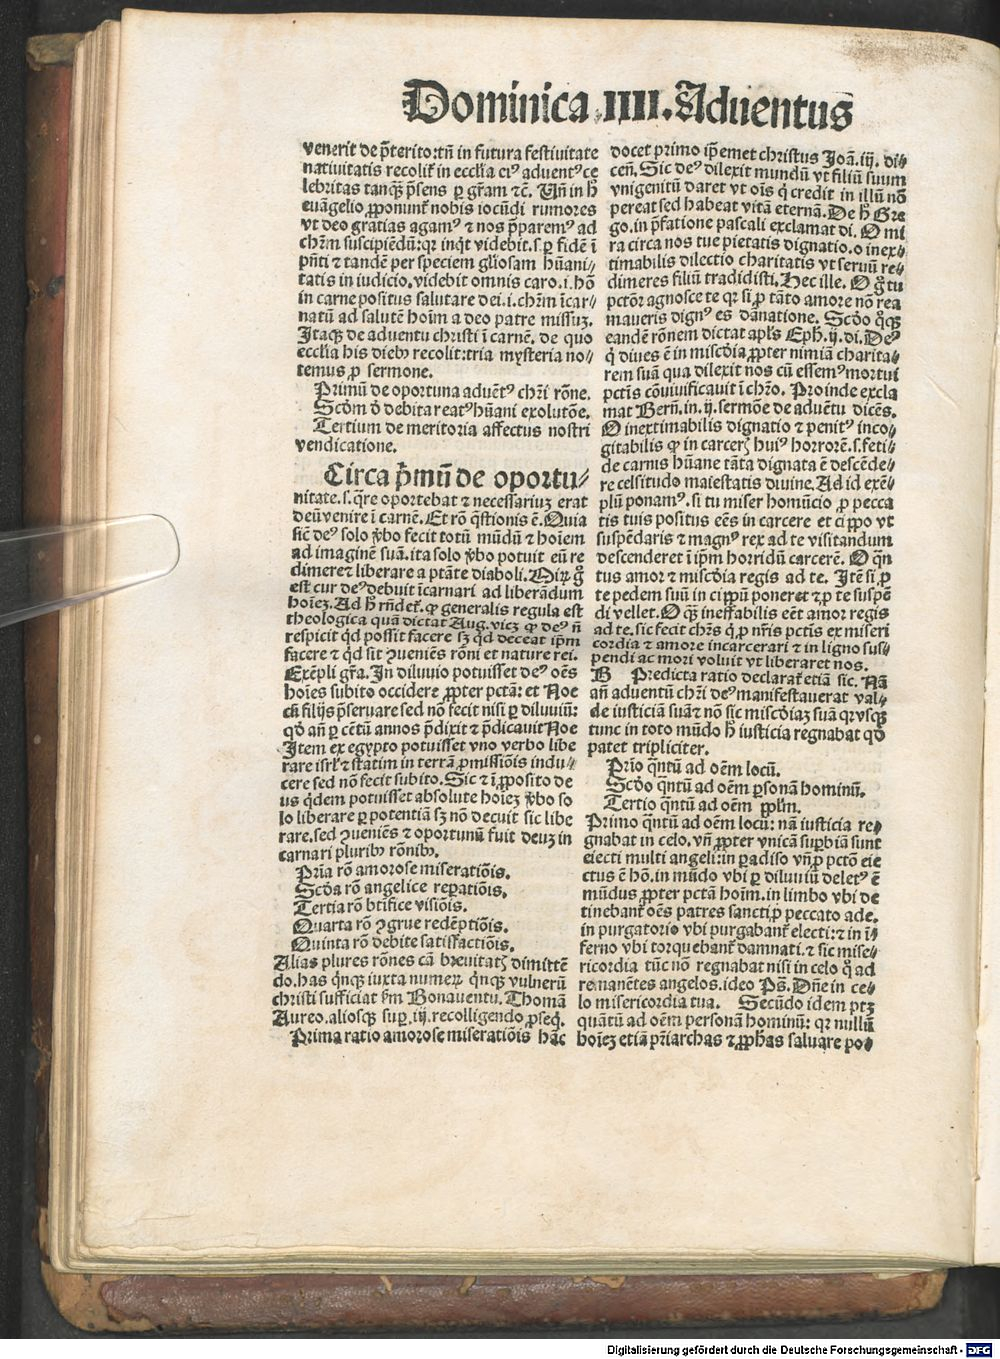 Dominica .IIII. Aduentus
venerit de p̄terito: tn̄ in futura festiuitate
natiuitatis recolit᷑ in eccl̄ia eiꝰ aduentꝰ ce
lebritas tanqꝫ p̄sens ꝑ gr̄am ⁊c̄. Vn̄ in h̄
euāgelio ꝓponunt᷑ nobis iocūdi rumores
vt deo gratias agamꝰ ⁊ nos p̄paremꝰ ad
chr̄m suscipiēdū: qꝛ inq̇t videbit .s. ꝑ fidē ī
pn̄ti ⁊ tandē per speciem gl̄iosam hūani⸗
tatis in iudicio. videbit omnis caro .i. hō
in carne positus salutare dei .i. chr̄m īcar⸗
natū ad salutē hoīm a deo patre missuꝫ.
Itaqꝫ de aduentu christi ī carnē. de quo
eccl̄ia his diebꝰ recolit: tria mysteria no⸗
temus ꝓ sermone.
Primū de oportuna aduētꝰ chr̄i rōne.
Scd̄m ď debita reatꝰ hūani exolutōe.
Tertium de meritoria affectus nostri
vendicatione.
Circa p̄mū de oportu⸗
nitate .s. q̄re oportebat ⁊ necessariuꝫ erat
deū venire ī carnē. Et rō q̄stionis ē. Quia
sic̄ deꝰ solo v̄bo fecit totū mūdū ⁊ hoīem
ad imaginē suā. ita solo v̄bo potuit eū re
dimere ⁊ liberare a ptāte diaboli. Mirꝫ gͦ
est cur deꝰ debuit īcarnari ad liberādum
hoīeꝫ. Ad h̄ rn̄det᷑. ꝙ generalis regula est
theologica quā dictat Aug. vicꝫ ꝙ deꝰ n̄
respicit qd̓ possit facere sꝫ qd̓ deceat ip̄m
facere ⁊ qd̓ sit ꝯueniēs rōni et nature rei.
Exēpli gr̄a. In diluuio potuisset deꝰ oēs
hoīes subito occidere ꝓpter pctā: et Noe
cū filijs p̄seruare sed nō fecit nisi ꝑ diluuiū:
qd̓ an̄ ꝑ cētū annos p̄dixit ⁊ p̄dicauit Noe
Item ex egypto potuisset vno verbo libe
rare isrl̄ ⁊ statim in terrā ꝓmissiōis indu⸗
cere sed nō fecit subito. Sic ⁊ ī ꝓposito de
us qd̓em potuisset absolute hoīeꝫ v̄bo so
lo liberare ꝑ potentiā sꝫ nō decuit sic libe
rare. sed ꝯueniēs ⁊ oportunū fuit deuꝫ in
carnari pluribꝰ rōnibꝰ.
Prīa rō amorose miseratiōis.
Scd̄a rō angelice reꝑatiōis.
Tertia rō btīfice visiōis.
Quarta rō ꝯgrue redēptiōis.
Quinta rō debite satisfactiōis.
Alias plures rōnes cā breuitatꝭ dimittē
do. has qnqꝫ iuxta numeꝝ qnqꝫ vulnerū
christi sufficiat ẜm Bonauentu. Thomā
Aureo. aliosqꝫ suꝑ .iij. recolligendo ꝓseq̇.
Prima ratio amorose miseratiōis hāc
docet primo ip̄emet christus Joā .iij. di⸗
cen̄. Sic deꝰ dilexit mundū vt filiū suum
vnigenitū daret vt oīs q̇ credit in illū nō
pereat sed habeat vitā eternā. De h̄ Gre
go. in p̄fatione pascali exclamat di. O mi
ra circa nos tue pietatis dignatio. o inex⸗
timabilis dilectio charitatis vt seruū re⸗
dimeres filiū tradidisti. Hec ille. O gͦ tu
pctōr agnosce te qꝛ si ꝓ tāto amore nō rea
maueris dignꝰ es dānatione. Scd̄o qͦqꝫ
eandē rōnem dictat apl̄s Eph̄ .ij. di. Deꝰ
q̇ diues ē in miscd̄ia ꝓpter nimiā charita⸗
tem suā qua dilexit nos cū essemꝰ mortui
pctīs cōuiuificauit ī chr̄o. Proinde excla
mat Bern̄. in .ij. sermōe de aduētu dicēs.
O inextimabilis dignatio ⁊ penitꝰ inco⸗
gitabilis ꝙ in carcerꝭ huiꝰ horrorē .s. feti⸗
de carnis hūane tāta dignata ē descēde⸗
re celsitudo maiestatis diuine. Ad id exē⸗
plū ponamꝰ. si tu miser homūcio ꝓ pecca
tis tuis positus eēs in carcere et ci ꝓpo vt
suspēdaris ⁊ magnꝰ rex ad te visitandum
descenderet ī ip̄m horridū carcerē. O q̄n
tus amor ⁊ miscd̄ia regis ad te. Itē si ꝓ
te pedem suū in cippū poneret ⁊ ꝓ te suspē
di vellet. O qꝫ ineffabilis eēt amor regis
ad te. sic fecit chr̄s q̇ ꝓ nr̄is pctīs ex miseri
cordia ⁊ amore incarcerari ⁊ in ligno sus⸗
pendi ac mori voluit vt liberaret nos.
B Predicta ratio declarat᷑ etiā sic. Nā
an̄ aduentū chr̄i deꝰ manifestauerat val⸗
de iusticiā suā ⁊ nō sic miscd̄iaꝫ suā qꝛ vsqꝫ
tunc in toto mūdo h̄ iusticia regnabat qd̓
patet tripliciter.
Prīo q̄ntū ad oēm locū.
Scd̄o q̄ntū ad oēm ꝑsonā hominū.
Tertio q̄ntū ad oēm ppl̄m.
Primo q̄ntū ad oēm locū: nā iusticia re⸗
gnabat in celo. vn̄ ꝓpter vnicā suꝑbiā sunt
eiecti multi angeli: in ꝑadiso vn̄ ꝓ pctō eie
ctus ē hō. in mūdo vbi ꝑ diluuiū deletꝰ ē
mūdus ꝓpter pctā hoīm. in limbo vbi de
tinebant᷑ oēs patres sancti ꝓ peccato ade.
in purgatorio vbi purgabant᷑ electi: ⁊ in ī⸗
ferno vbi torquebant᷑ damnati. ⁊ sic mise⸗
ricordia tūc nō regnabat nisi in celo qͦ ad
remanētes angelos. ideo Ps̄. Dn̄e in ce⸗
lo misericordia tua. Secūdo idem ptꝫ
quātū ad oēm personā hominū: qꝛ nullū
hoīeꝫ etiā pr̄iarchas ⁊ ꝓph̄as saluare po⸗
Digitalisierung gefördert durch die Deutsche Forschungsgemeinschaft - DFG